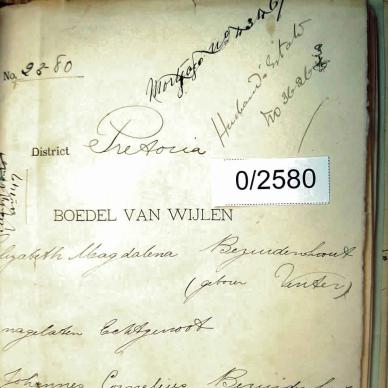 Mortgage No
No. 2580
Husband's Estate
No 3626
District Pretoria
0/2580
BOEDEL VAN WIJLEN
Elizabeth Magdalena Bezuidenhout
(geboren Venter)
nagelaten Echtgenoot
Johannes Cornelius